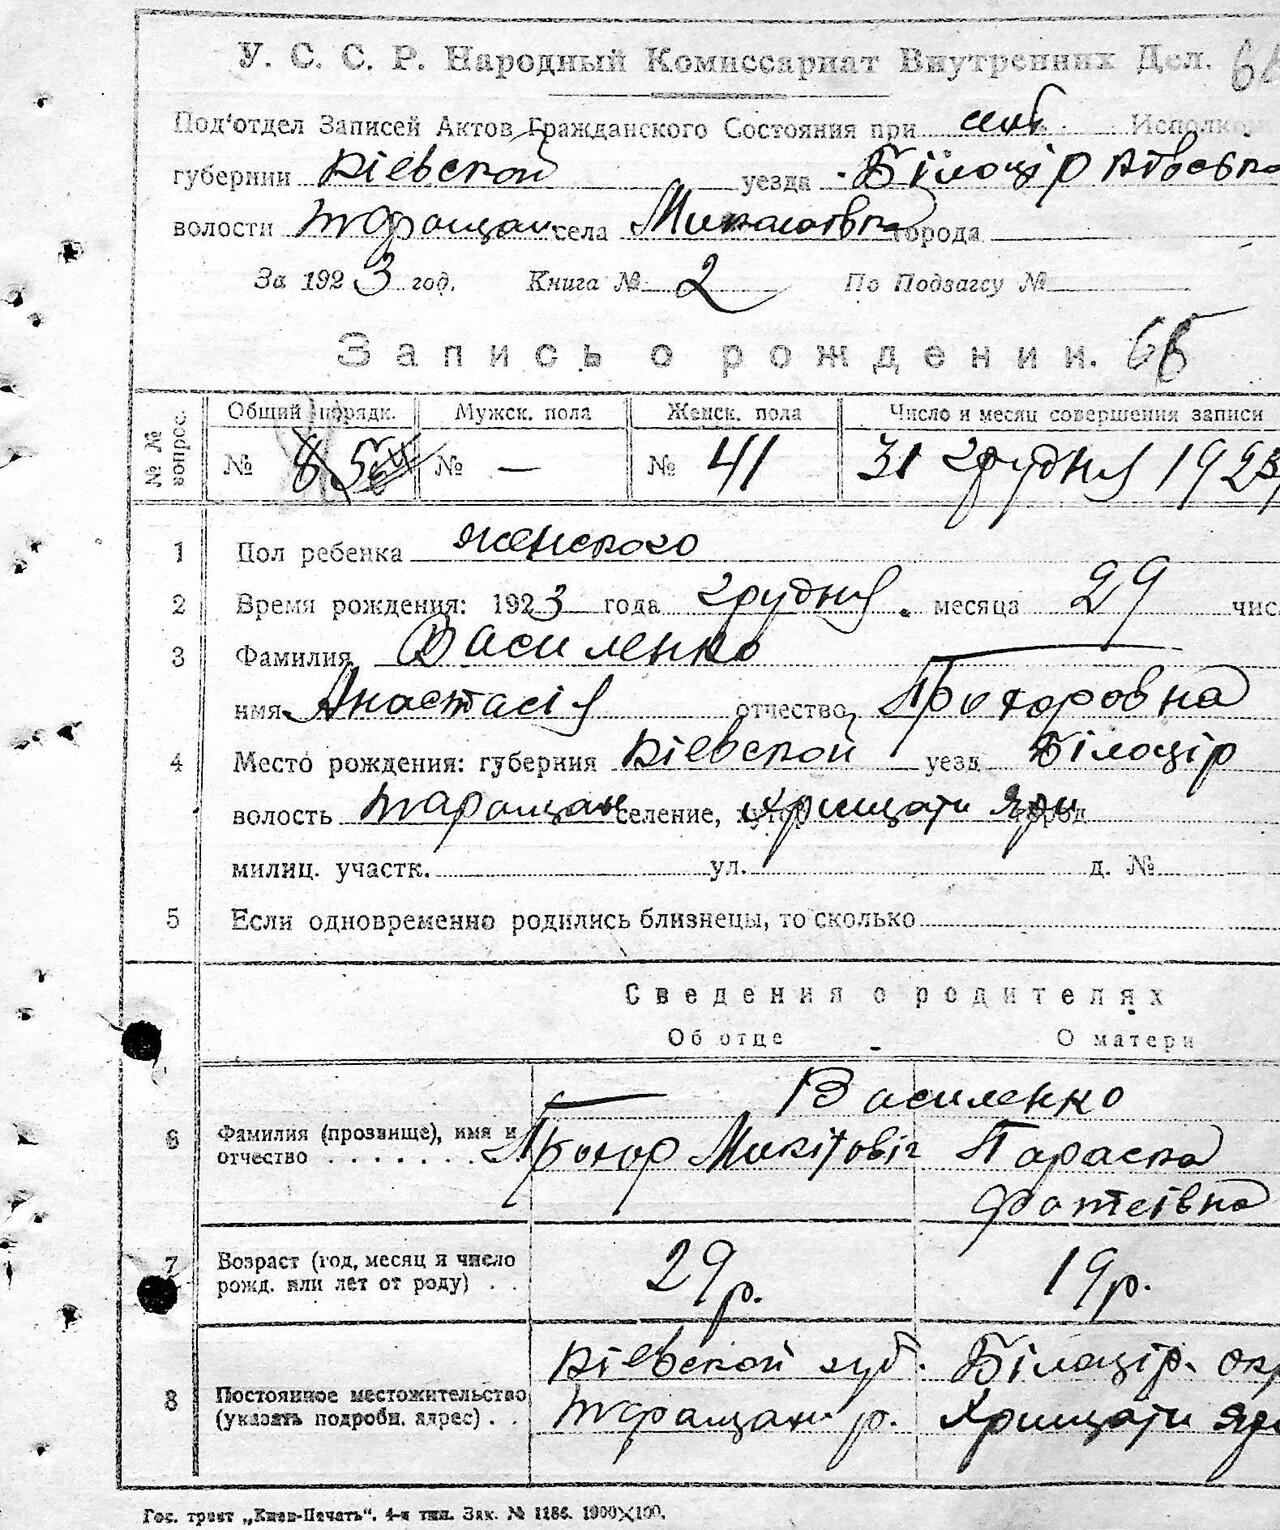 У. С. С. Р. Народный Комиссариат Внутренних Дел.
Под'отдел Записей Актов Гражданского Состояния при Исполком
губернии Кіевской уезда Білоцірківсько
волости Таращан. села Миколаївка города
За 1923 год. Книга № 2 По Подзагсу №
Запись о рождении. 68
№ № вопрос. Общий порядк. Мужск. пола Женск. пола Число и месяц совершения записи
№ № — № 41 31 грудня 1923
1 Пол ребенка женского
2 Время рождения: 1923 года грудня месяца 29 чис
3 Фамилия Василенко
имя Анастасія отчество Прохоровна
4 Место рождения: губерния Кіевской уезд Білоцір
волость Таращан селение, хутор Хрищати Яри город
милиц. участк. ул. д. №
5 Если одновременно родились близнецы, то сколько
Сведения о родителях
Об отце О матери
Василенко
6 Фамилия (прозвище), имя и отчество . . . . . . . Прохор Микітовіч Параска
Фотеівна
7 Возраст (год, месяц и число рожд. или лет от роду) . . 29 р. 19 р.
8 Постоянное местожительство (указать подробн. адрес) . . Кіевской губ. Білоцір. окр
Таращан. р. Хрищати Яри
Гос. трест „Киев-Печать“. 4-я тип. Зак. № 1186. 1900×100.